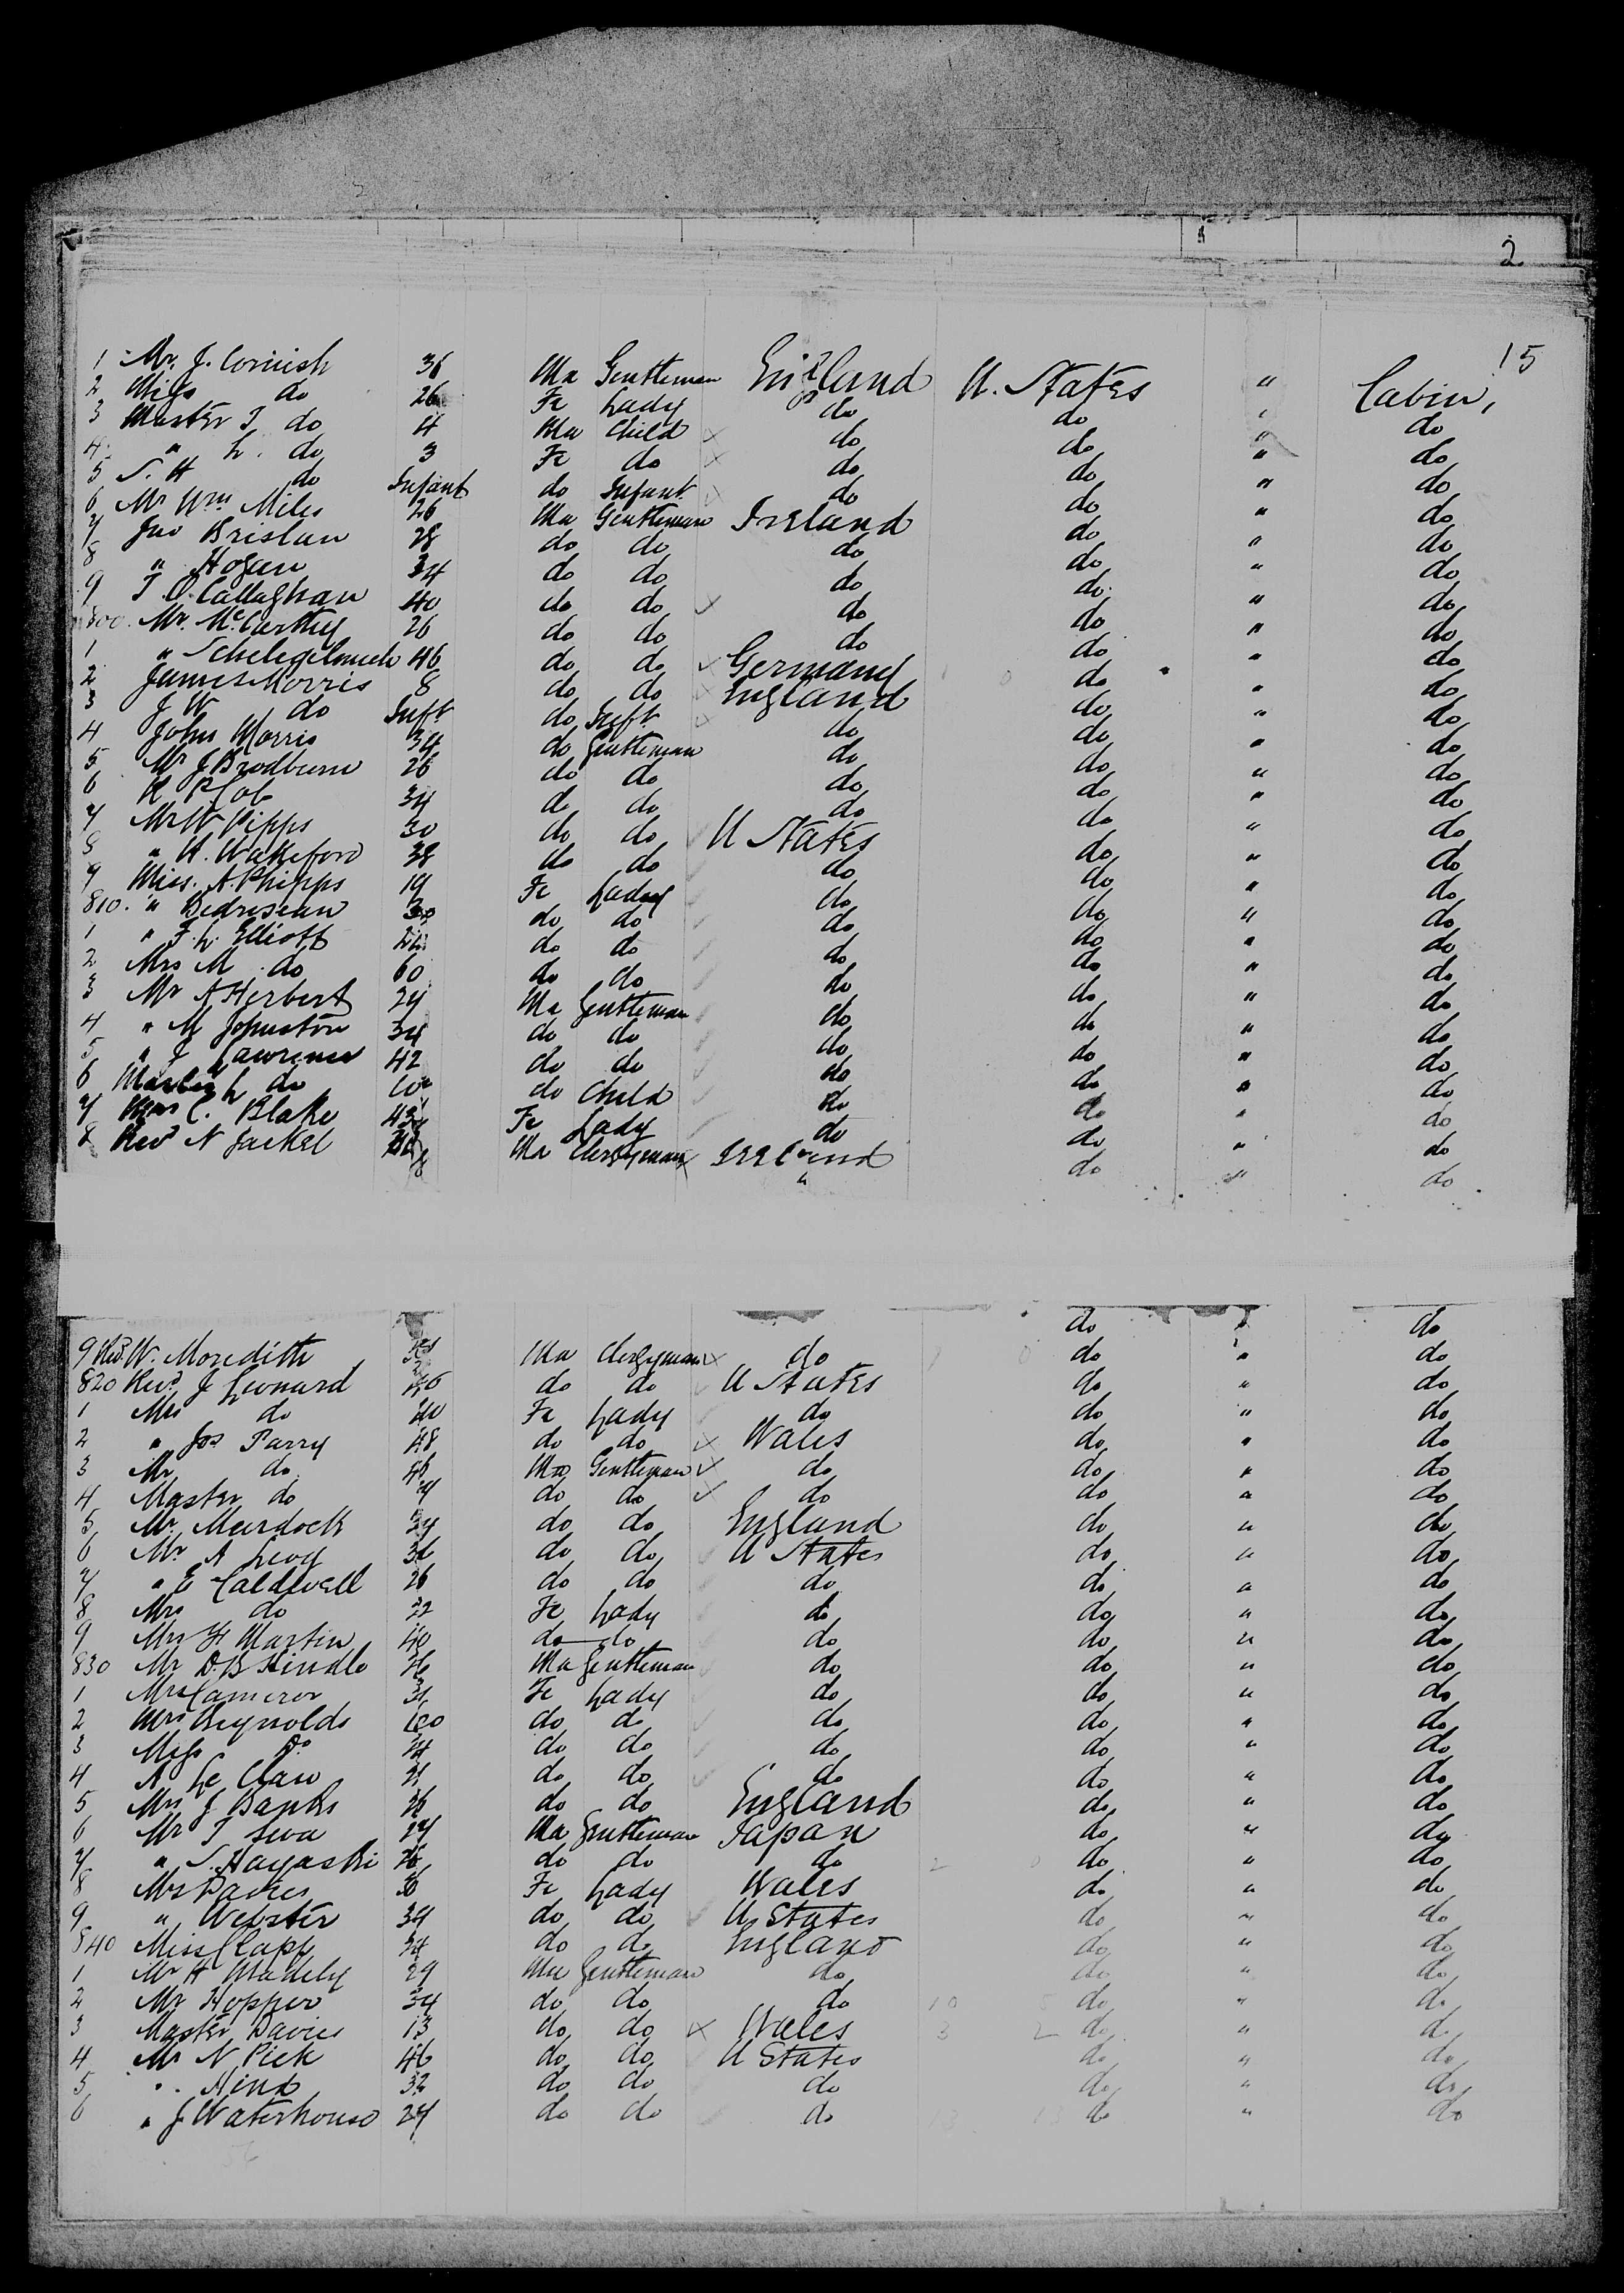 2
15
1 Mr. J. Cornish 36 Ma Gentleman England U. States " Cabin,
2 Miss do 26 Fe Lady do do " do
3 Master T do 4 Ma Child do do " do
4 " L. do 3 Fe do do do " do
5 S. H do Infant do Infant do do " do
6 Mr Wm Miles 26 Ma Gentleman Ireland do " do
7 Jno Brislan 28 do do do do " do
8 " Hogan 34 do do do do " do
9 T O.Callaghan 40 do do do do " do
800. Mr. McCarthy 26 do do do do " do
1 " 46 do do Germany do " do
2 James Morris 8 do do England do " do
3 J W do Inft do Inft. do do " do
4 John Morris 34 do Gentleman do do " do
5 Mr J Brodburn 26 do do do do " do
6 R 34 do do do do " do
7 Mr W Pipps 30 do do U States do " do
8 " H. Wakeford 38 do do do do " do
9 Miss. A. Phipps 19 Fe Lady do do " do
810. " do do do do " do
1 " F. L. Elliott 22 do do do do " do
2 Mrs M do 60 do do do do " do
3 Mr A Herbert 27 Ma Gentleman do do " do
4 " M Johnston 34 do do do do " do
5 " J Lawrence 42 do do do do " do
6 Master L do 10 do Child do do " do
7 Mrs C. Blake 43 Fe Lady do do " do
8 Revd N Jackel Ma Clergyman Ireland do " do
do " do
9 Revd. W. Moredith Ma Clergyman do do " do
820 Revd J Leonard do do U States do " do
1 Mrs do 40 Fe Lady do do " do
2 " Jos Parry 48 do do Wales do " do
3 Mr do 46 Ma Gentleman do do " do
4 Master do 7 do do do do " do
5 Mr. Murdock 34 do do England do " do
6 Mr A Levy 36 do do U States do " do
7 " E Caldwell 26 do do do do " do
8 Mrs do 22 Fe Lady do do " do
9 Mrs H Martin 40 do do do do " do
830 Mr D. B Ma Gentleman do do " do
1 Mrs Cameron Fe Lady do do " do
2 Mrs Reynolds do do do do " do
3 Miss Do 24 do do do do " do
4 A Le Claw 21 do do do do " do
5 Mrs J Banks 26 do do England do " do
6 Mr T 27 Ma Gentleman Japan do " do
7 " S. Hayashi 26 do do do do " do
8 Mrs Davies Fe Lady Wales do " do
9 " Webster 34 do do U. States do " do
840 Miss Clapp 34 do do England do " do
1 Mr H Madely 29 Ma Gentleman do do " do
2 Mr Hopper 34 do do do do " do
3 Master Davies 13 do do Wales do " do
4 Mr N Pick 46 do do U States do " do
5 " Hind 32 do do do do " do
6 " J Waterhouse 27 do do do do " do